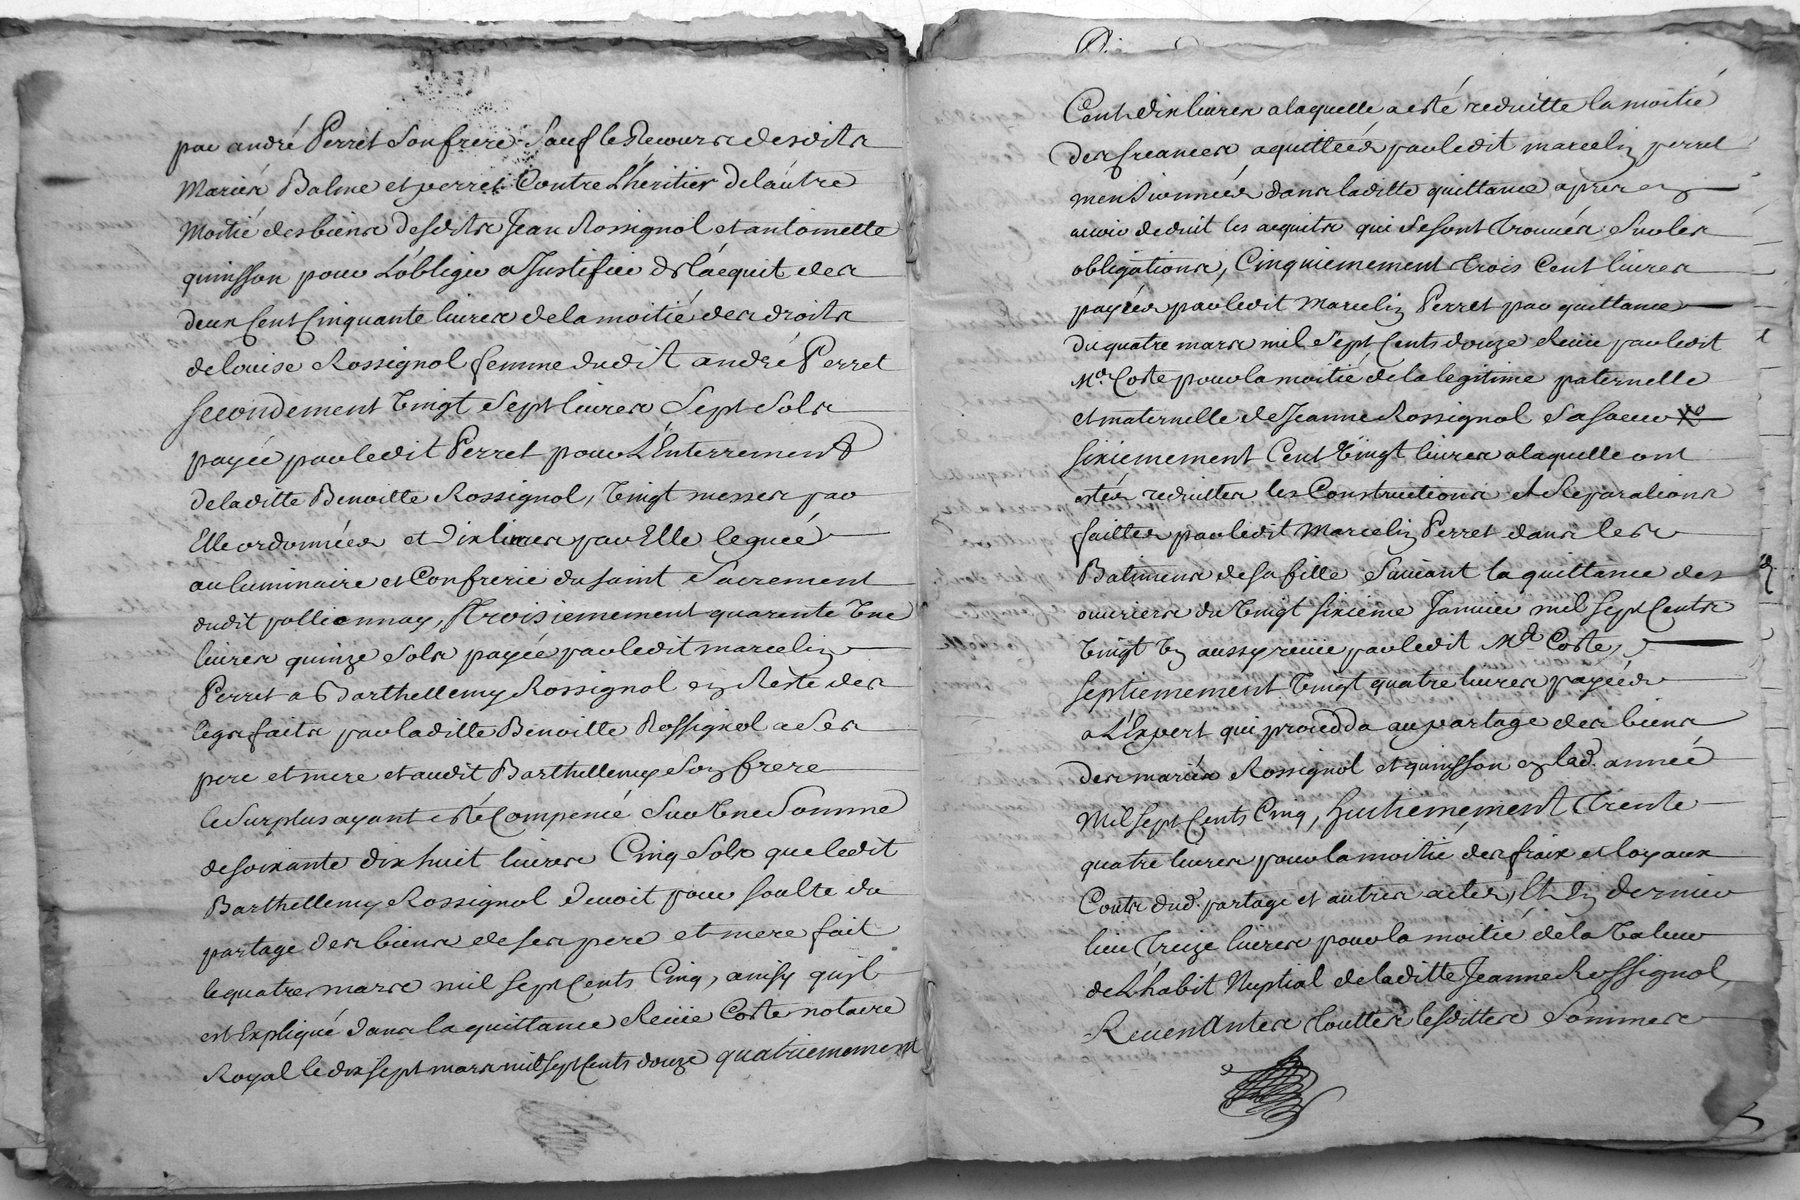 par andré Perret Son frere Sauf le Recours desdits
Mariés Balme et perret Contre L'héritier de l'autre
Moitié des biens desdits Jean Rossignol et antoinette
quinsson pour L'obliger a Justifier de l'acquit des
deux Cent Cinquante livres de la moitié des droits
de louise Rossignol femme dudit andré Perret
secondement Vingt Sept livres Sept Sols
payée par ledit Perret pour L'Enterrement
de laditte Benoitte Rossignol, Vingt messes par
Elle ordonnées et Dix livres par Elle leguée
au luminaire et Confrerie du saint Sacrement
dudit pollionnay, Troisiemement quarente Une
livres quinze Sols payée par ledit marcelin
Perret a Barthellemy Rossignol en Reste des
legs faits par laditte Benoitte Rossignol a Ses
pere et mere et audit Barthellemy Son frere
le Surplus ayant esté Compensé Sur Une Somme
de soixante dix huit livres Cinq Sols que ledit
Barthellemy Rossignol devoit pour soulte du
partage des biens de ses pere et mere fait
le quatre mars mil sept Cents Cinq, ainsy qu'il
est Expliqué dans la quittance Reçüe Coste notaire
Royal le dix sept mars mil sept Cents douze quatriemement
Cent dix livres a laquelle a esté reduitte la moitié
des creances aquittées par ledit marcelin perret
mensionnées dans laditte quittance aprés en
avoir deduit les acquits qui se sont trouvés Sur les
obligations, Cinquiemement trois Cent livres
payées par ledit Marcelin Perret par quittance
du quatre mars mil Sept Cents douze Reçüe par ledit
Me Coste pour la moitié de la legitime paternelle
et maternelle de Jeanne Rossignol Sa soeur
sixiemement Cent Vingt livres a laquelle ont
estés reduittes les Constructions et Reparations
faittes par ledit Marcelin Perret dans les
Batimens de sa fille Suivant la quittance des
ouvriers du Vingt sixiéme Janvier mil sept Cents
Vingt Un aussy reçüe par ledit Me Coste,
septiemement Vingt quatre livres payées
a L'Expert qui procedda au partage des biens
des mariés Rossignol et quinsson en lad. année
Mil sept Cents Cinq, huitiemement Trente
quatre livres pour la moitié des fraix et loyaux
Couts dud. partage et autres actes, Et En dernier
lieu Treize livres pour la moitié de la Valeur
de L'habit Nuptial de laditte Jeanne Rossignol,
Revenantes touttes lesdittes Sommes